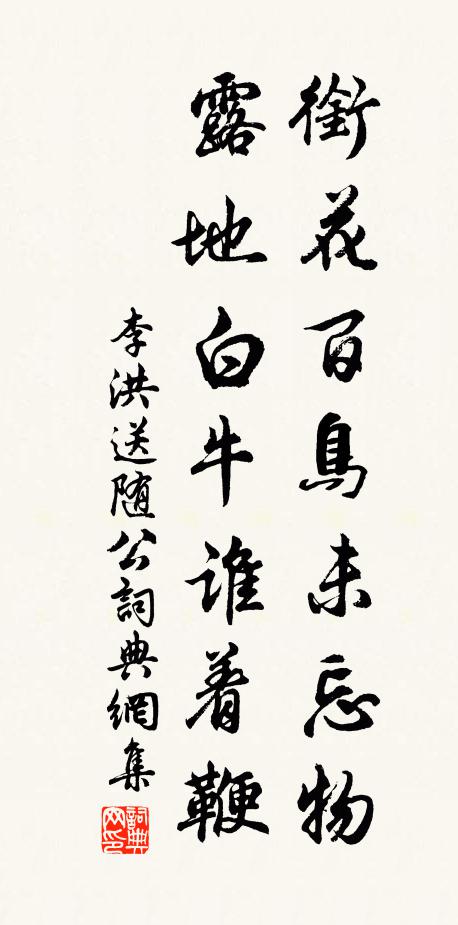 銜花百鳥未忘物
露地白牛誰着鞭
李洪送随公詞典網集
詞典网印